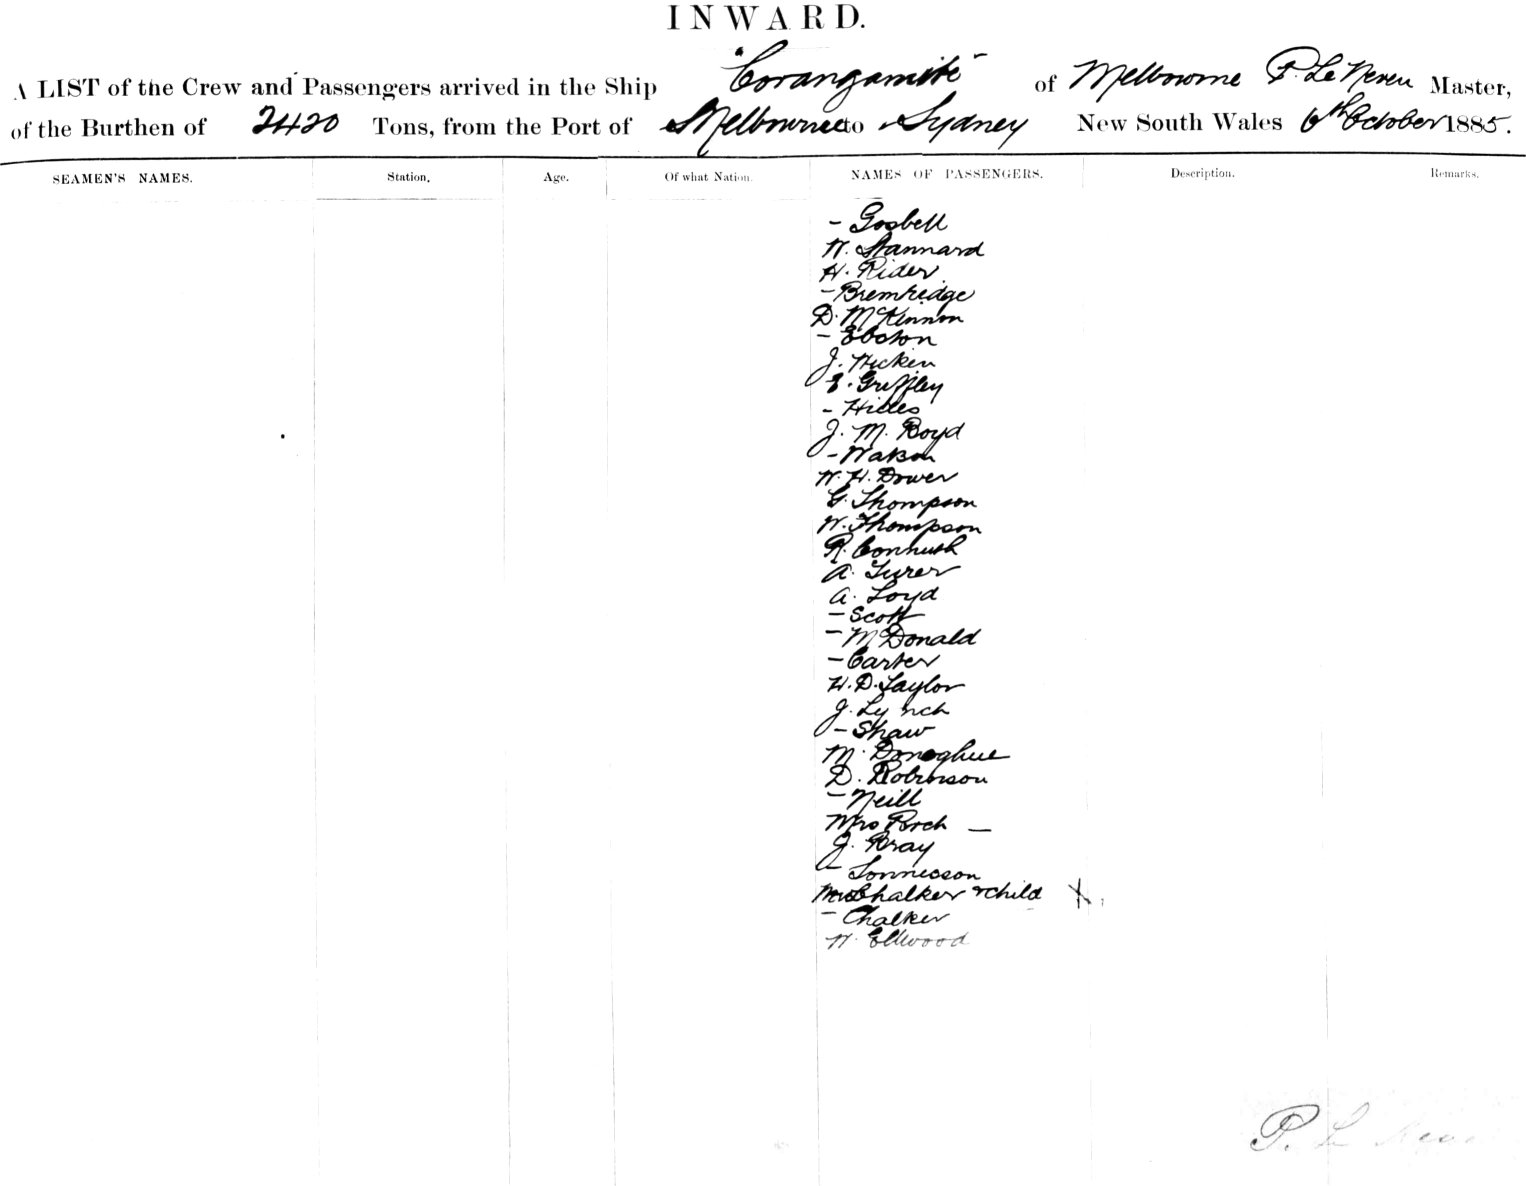 INWARD.
A LIST of the Crew and Passengers arrived in the Ship "Corangamite" of Melbourne P. Le Neveu Master,
of the Burthen of 2420 Tons, from the Port of Melbourne to Sydney New South Wales 6th October 1885.
SEAMEN'S NAMES. Station. Age. Of what Nation. NAMES OF PASSENGERS. Description. Remarks.
- Gosbell
W. Stannard
H. Rider
- Bremridge
D. McKinnon
- Ebston
J. Hicken
E. Griffley
- Hilles
J. M. Boyd
- Watson
W. H. Dower
G. Thompson
W. Thompson
R.
A. Turer
A. Loyd
- Scott
- McDonald
- Carter
H. D. Taylor
J. Lynch
- Shaw
M. Donoghue
D. Robinson
- Neill
Mrs Porch —
J. Bray
-
Mrs Chalker & child X
- Chalker
W. Ellwood
P. Le